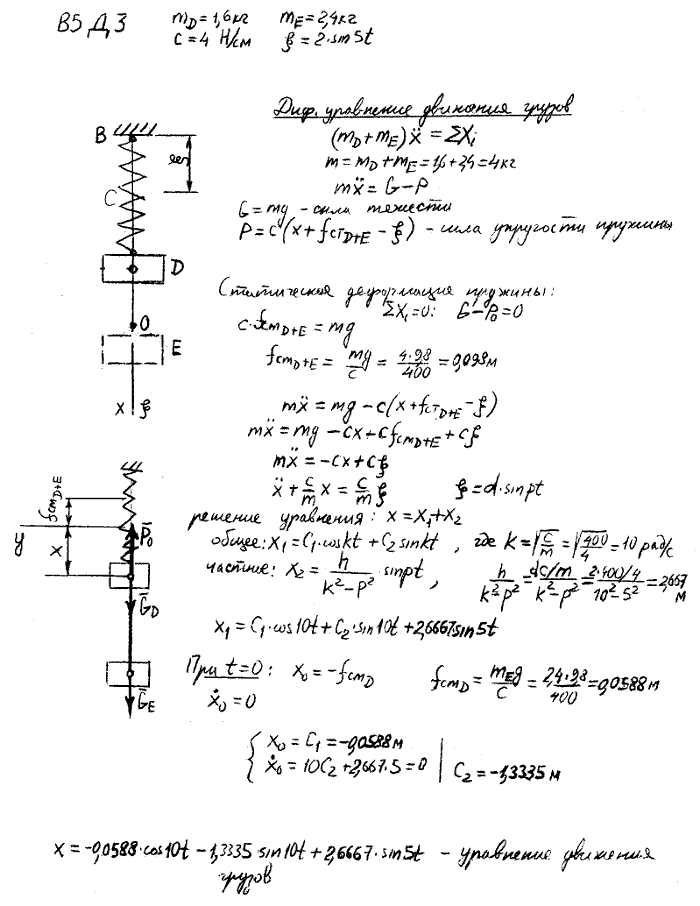 В5 Д3
m_D = 1,6 кг   m_E = 2,4 кг
c = 4 Н/см   ξ = 2·sin5t
Диф. уравнение движения грузов
(m_D + m_E)ẍ = ΣX_i
m = m_D + m_E = 1,6 + 2,4 = 4 кг
mẍ = G − P
G = mg – сила тяжести
P = c(x + f_стD+E − ξ) – сила упругости пружины
B
C
D
O
E
x ξ
Статическая деформация пружины:
ΣX_i = 0: G − P_0 = 0
c·f_стD+E = mg
f_стD+E = mg/c = 4·9,8/400 = 0,098 м
mẍ = mg − c(x + f_стD+E − ξ)
mẍ = mg − cx − cf_стD+E + cξ
mẍ = −cx + cξ
ẍ + c/m x = c/m ξ   ξ = d·sinpt
решение уравнения: x = x_1 + x_2
общее: x_1 = C_1·coskt + C_2 sinkt, где k = √(c/m) = √(400/4) = 10 рад/с
частное: x_2 = h/(k² − p²) sinpt, h/(k² − p²) = (dc/m)/(k² − p²) = (2·400/4)/(10² − 5²) = 2,667 м
x_1 = C_1·cos10t + C_2·sin10t + 2,6667sin5t
f_стD+E
y
x
P̄_0
Ḡ_D
Ḡ_E
При t = 0: x_0 = −f_стD   f_стD = m_E g/c = 2,4·9,8/400 = 0,0588 м
ẋ_0 = 0
{ x_0 = C_1 = −0,0588 м
ẋ_0 = 10C_2 + 2,667·5 = 0 | C_2 = −1,3335 м
x = −0,0588·cos10t − 1,3335 sin10t + 2,6667·sin5t – уравнение движения
грузов